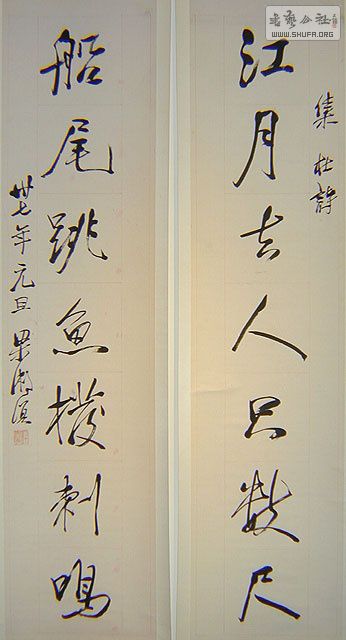 書藝公社
WWW.SHUFA.ORG
集杜詩
江月去人只數尺
船尾跳魚撥剌鳴
卅七年元旦 梁漱溟